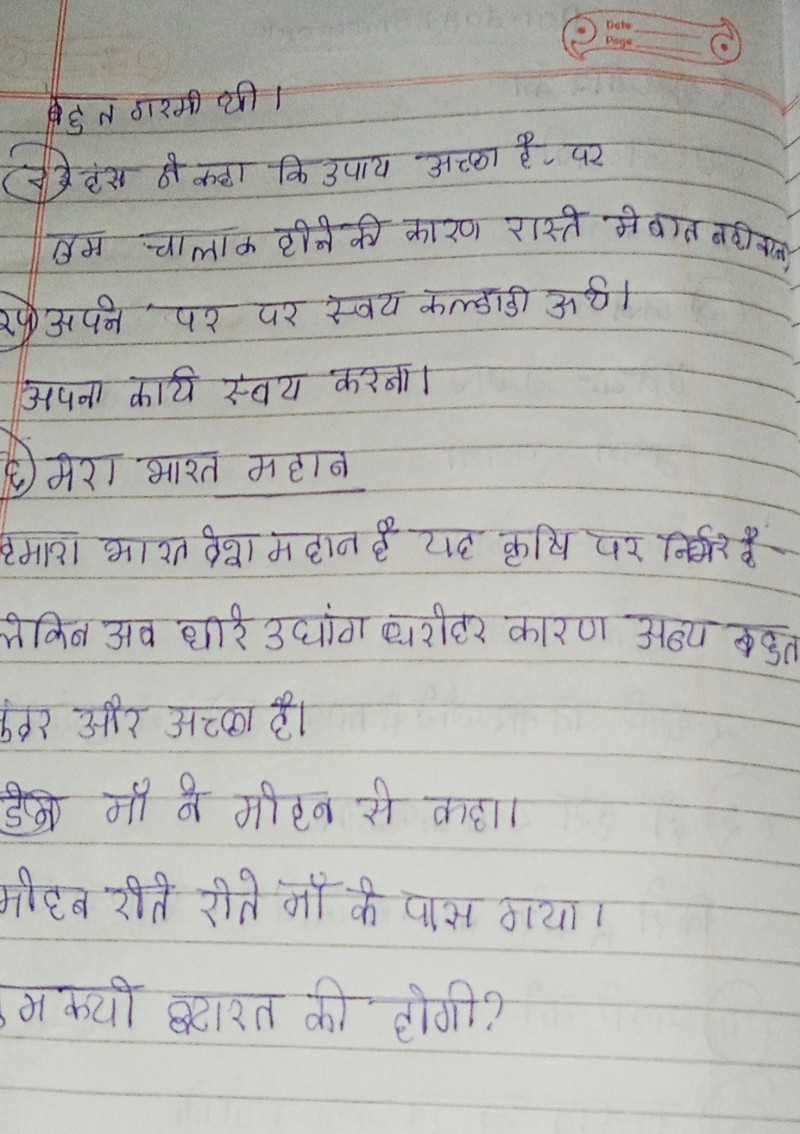 Date
Page
बहुत गरमी थी।
हंस ने कहा कि उपाय अच्छा है - पर
तुम चालाक होने की कारण रास्ते मे बात नही
अपने पर पर स्वय कल्डाडी अर्थ।
अपना कार्य स्वय करना।
६) मेरा भारत महान
हमारा भारत देश महान है यह कृषि पर निर्भर है -
लेकिन अब धीरे उधांग धरोहर कारण अन्य बहुत
सुंदर और अच्छा है।
माँ ने मोहन से कहा।
मोहन रोते रोते माँ के पास गया।
तुम क्यो शरारत की होगी?